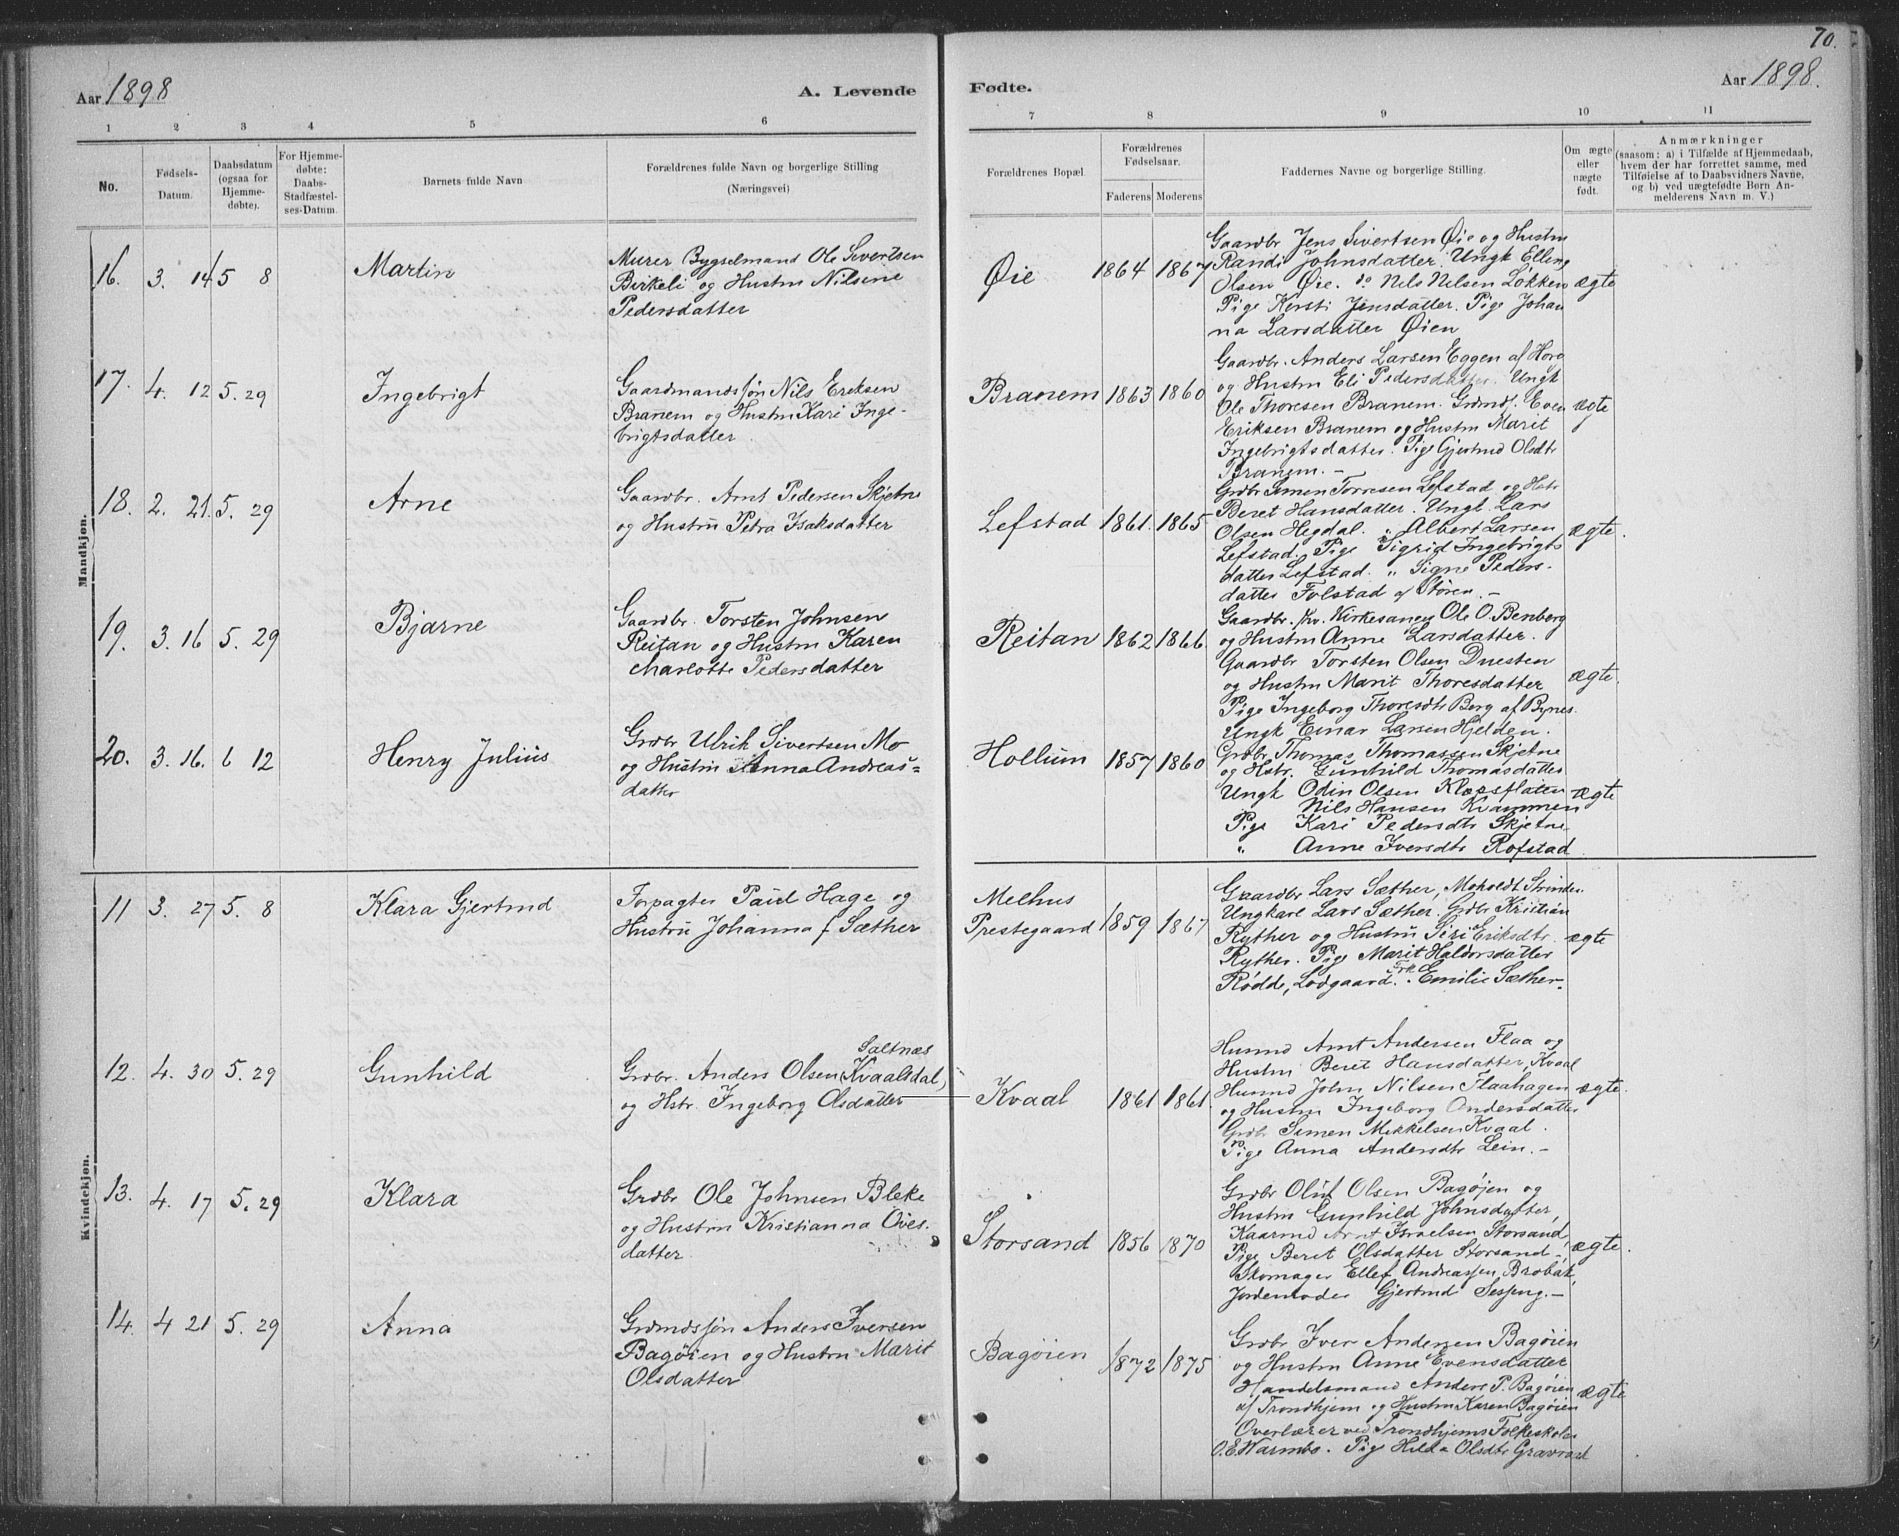 70.
Aar 1898
A. Levende
Fødte.
Aar 1898.
1 2 3 4 5 6 7 8 9 10 11
No.
Fødsels-
Datum.
Daabsdatum
(ogsaa for
Hjemme-
døbte).
For Hjemme-
døbte:
Daabs-
Stadfæstel-
ses-Datum.
Barnets fulde Navn
Forældrenes fulde Navn og borgerlige Stilling
(Næringsvei)
Forældrenes Bopæl.
Forældrenes
Fødselsaar.
Faderens Moderens
Faddernes Navne og borgerlige Stilling.
Om ægte
eller
nægte
født.
Anmærkninger
(saasom: a) i Tilfælde af Hjemmedaab,
hvem der har forrettet samme, med
Tilføielse af to Daabsvidners Navne,
og b) ved uægtefødte Børn An-
melderens Navn m. V.)
Mandkjøn.
16. 3. 14 5 8
Martin
Murer Bygselmand Ole Sivertsen
Birkeli og Hustru Nilsine
Pedersdatter
Øie
1864 1867
Gaardbr Jens Sivertsen Øie og Hustru
Randi Johnsdatter. Ungk Elling
Olsen Øie. do Nils Nilsen Løkken
Pige Kersti Jensdatter. Pige Johan
na Larsdatter Øien
ægte
17. 4. 12 5. 29
Ingebrigt
Gaardmandssøn Nils Eriksen
Branem og Hustru Kari Inge-
brigtsdatter.
Branem
1863 1860
Gaardbr. Anders Larsen Eggen af Horg
og Hustru Eli Pedersdatter. Ungk
Ole Thoresen Branem. Grdmds. Even
Eriksen Branem og Hustru Marit
Ingebrigtsdatter. Pige Gjertrud Olsdtr
Branem. -
ægte
18. 2. 21. 5. 29
Arne
Gaardbr. Arnt Pedersen Skjetne
og Hustru Petra Isaksdatter
Lefstad
1861. 1865
Grdbr Simen Torresen Lefstad og Hstr
Beret Hansdatter. Ungk. Lars
Olsen Hegdal. " Albert Larsen
Lefstad. Pige Sigrid Ingebrigts
datter Lefstad. " Signe Peders-
datter Folstad af Støren. -
ægte.
19. 3. 16 5. 29
Bjarne
Gaardbr. Torsten Johnsen
Reitan og Hustru Karen
Charlotte Pedersdatter
Reitan
1862 1866.
Gaardbr. Kirkesanger Ole O. Benberg
og Hustru Anne Larsdatter.
Gaardbr Torsten Olsen Duesten
og Hustru Marit Thoresdatter
Pige Ingeborg Thoresdtr Berg af Bynes.
Ungk Einar Larsen Hjelden.
ægte.
20. 3. 16. 6 12
Henry Julius
Grdbr Ulrik Sivertsen Mo
og Hustru Anna Andreas=
datter
Hollum
1857 1860
Grdbr Thomas Thomassen Skjetne
og Hstr. Gunhild Thomasdatter
Ungk Odin Olsen Klæpsflaten
Nils Hansen Kvammen
Pige Kari Pedersdtr Skjetne
" Anne Iversdtr Rofstad
ægte
Kvindekjøn.
11 3. 27 5. 8
Klara Gjertrud
Forpagter Paul Hage og
Hustru Johanna f Sæther
Melhus
Prestegaard
1859 1867
Gaardbr Lars Sæther, Moholdt Strinden
Ungkarl Lars Sæther. Grdbr Kristian
Ryther og Hustru Siri Eriksdtr.
Ryther. Pige Marit Haldorsdatter
Rødde, Lodgaard. Frk. Emilie Sæther.
ægte
12. 4. 30 5. 29
Gunhild
Saltnæs
Grdbr. Anders Olsen Kvaalsdal,
og Hstr. Ingeborg Olsdatter
Kvaal
1861 1861.
Husmd Arnt Andersen Flaa og
Hustru Beret Hansdatter, Kvaal
Husmd John Nilsen Flaahagen
og Hustru Ingeborg Andersdatter
Grdbr Simen Mikkelsen Kvaal.
Pige Anna Andersdtr Lein. -
ægte.
13. 4. 17 5. 29
Klara
Grdbr Ole Johnsen Bleke
og Hustru Kristianna Oves-
datter.
Storsand
1856 1870
Grdbr Oluf Olsen Bagøien og
Hustru Gunhild Johnsdatter,
Kaarmd Arnt Israelsen Storsand,
Pige Beret Olsdatter Storsand.
Skomager Ellef Andreassen Brobak,
Jordemoder Gjertrud Sesseng. -
ægte.
14. 4 21 5. 29
Anna
Grdmdssøn Anders Iversen
Bagøien og Hustru Marit
Olsdatter
Bagøien
1872 1875
Grdbr Iver Andersen Bagøien
og Hustru Anne Evensdatter
Handelsmand Anders P. Bagøien
af Trondhjem og Hustru Karen Bagøien
Overlærer ved Trondhjems Folkeskole
O. E. Warmbo. Pige Hilda Olsdtr Gravraak
ægte